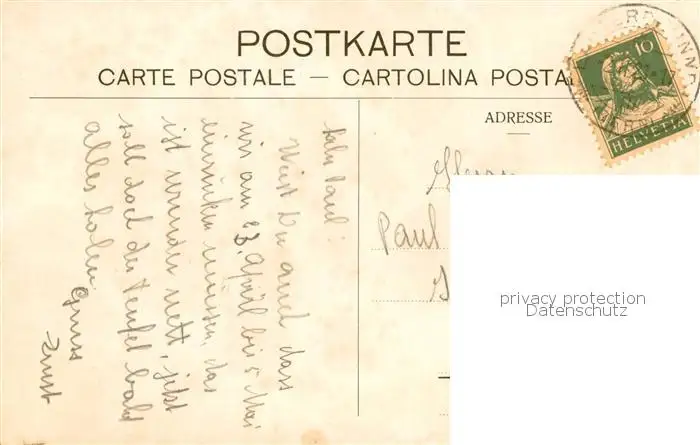 POSTKARTE
CARTE POSTALE — CARTOLINA POSTA
10
HELVETIA
ADRESSE
Herrn
Paul
privacy protection
Datenschutz
Paul!
Weist Du auch dass
wir am 23. April bis 5 Mai
einrücken müssen, das
ist wieder nett, jetzt
soll doch der Teufel bald
alles holen.
Gruss
Ernst